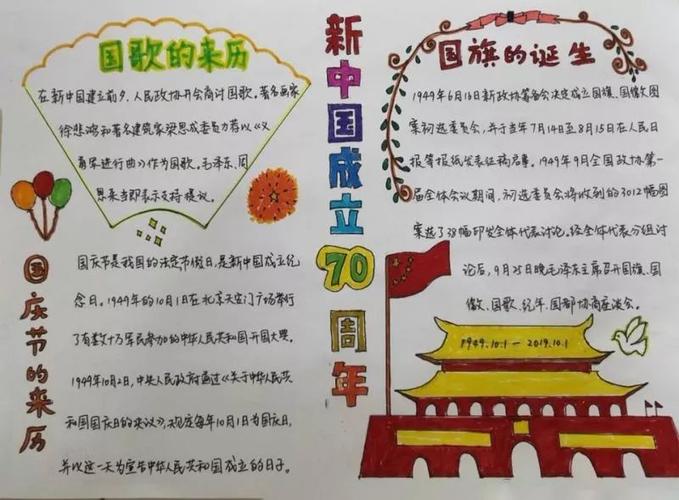 国歌的来历
在新中国建立前夕,人民政协开会商讨国歌。著名画家
徐悲鸿和著名建筑家梁思成委员力荐以《义
勇军进行曲》作为国歌。毛泽东、周
恩来当即表示支持提议。
国庆节的来历
国庆节是我国的法定节假日,是新中国成立纪
念日。1949年的10月1日在北京天安门广场举行
了有数十万军民参加的中华人民共和国开国大典。
1949年10月2日,中央人民政府通过《关于中华人民共
和国国庆日的决议》,规定每年10月1日为国庆日,
并以这一天为宣告中华人民共和国成立的日子。
新中国成立70周年
国旗的诞生
1949年6月16日新政协筹备会决定成立国旗、国徽图
案初选委员会,并于当年7月14日至8月15日在人民日
报等报纸发表征稿启事。1949年9月全国政协第一
届全体会议期间,初选委员会将收到的3012幅图
案选了38幅印发全体代表讨论。经全体代表分组讨
论后,9月25日晚毛泽东主席召开国旗、国
徽、国歌、纪年、国都协商座谈会。
1949.10.1-2019.10.1